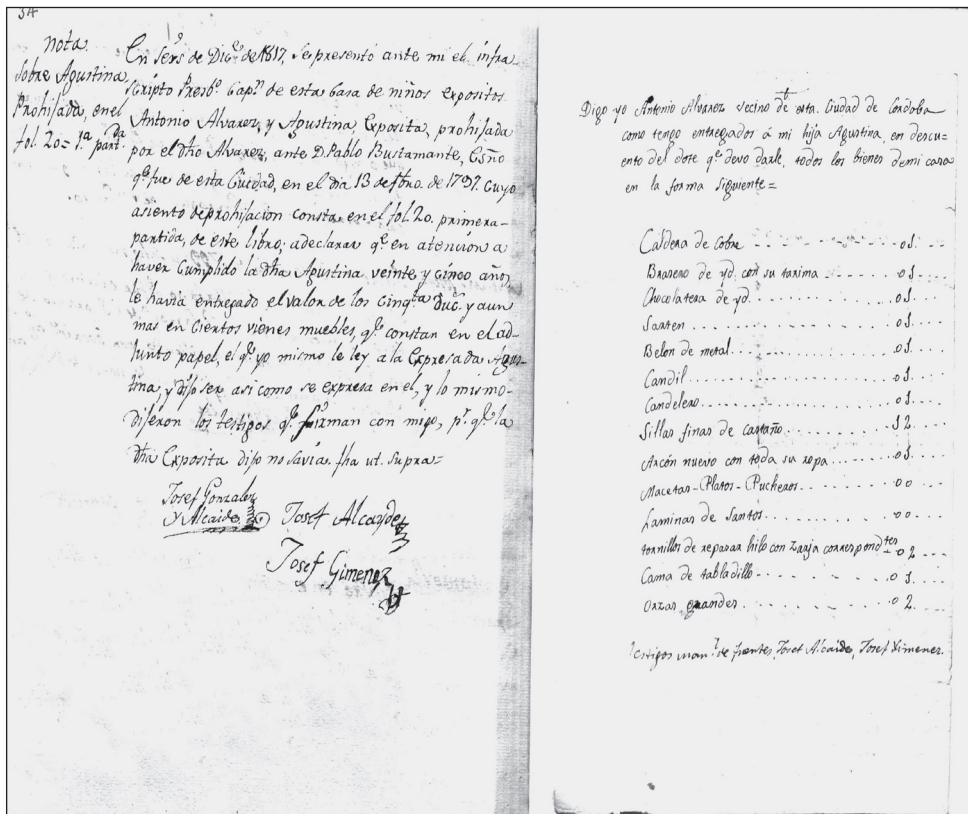 34
nota.
sobre Agustina
Prohijada, en el
fol. 20 = 1.ª part.da
En seis de Dic.e de 1817, se presentó ante mi el infra-
scripto Presb.o Cap.n de esta Casa de niños expositos
Antonio Alvarez, y Agustina, Exposita, prohijada
por el dho Alvarez, ante D. Pablo Bustamante, Esño
q.e fue de esta Ciudad, en el dia 13 de fbro. de 1797. Cuyo
asiento de prohijacion consta en el fol. 20. primera-
partida, de este libro; a declarar q.e en atencion a
haver Cumplido la dha Agustina veinte, y cinco años,
le havia entregado el valor de los cinq.ta Duc.s y aun
mas en Ciertos vienes muebles, q.e constan en el ad-
junto papel, el q.e yo mismo le ley a la Expresada Agus-
tina, y dijo ser asi como se expresa en el, y lo mismo-
dijeron los testigos q.e firman con migo, p.r q.e la
dha Exposita dijo no savia. fha ut. supra=
Josef Gonzalez
y Alcaide
Josef Alcayde
Josef Gimenez
Digo yo Antonio Alvarez vecino de esta Ciudad de Cordoba
como tengo entregados á mi hija Agustina, en descu-
ento del dote q.e devo darle, todos los bienes de mi casa
en la forma siguiente =
Caldera de Cobre - - - - - - - - - 01. . .
Brasero de yd. con su tarima - - - . . . . . 01. . . .
Chocolatera de yd. . . . . . . . . . . 01. . . .
Sarten . . . . . . . . . . . . . . . 01. . . .
Belon de metal . . . . . . . . . . . . 01. . . .
Candil . . . . . . . . . . . . . . . 01. . . .
Candelero . . . . . . . . . . . . . . 01. . . .
Sillas finas de castaño . . . . . . . . . 12. . . .
Arcón nuevo con toda su ropa . . . . . . 01. . . .
Macetas - Platos - Pucheros . . . . . . . 00 . . . .
Laminas de Santos . . . . . . . . . . . 00 . . . .
tornillos de reparar hilo con zarja correspond.tes - 02 . . . .
Cama de tabladillo - . . . . . . . . . 01. . . .
Orzas grandes . . . . . . . . . . . . 02. . . .
Testigos Man.l de fuentes, Josef Alcaide, Josef Ximenez.